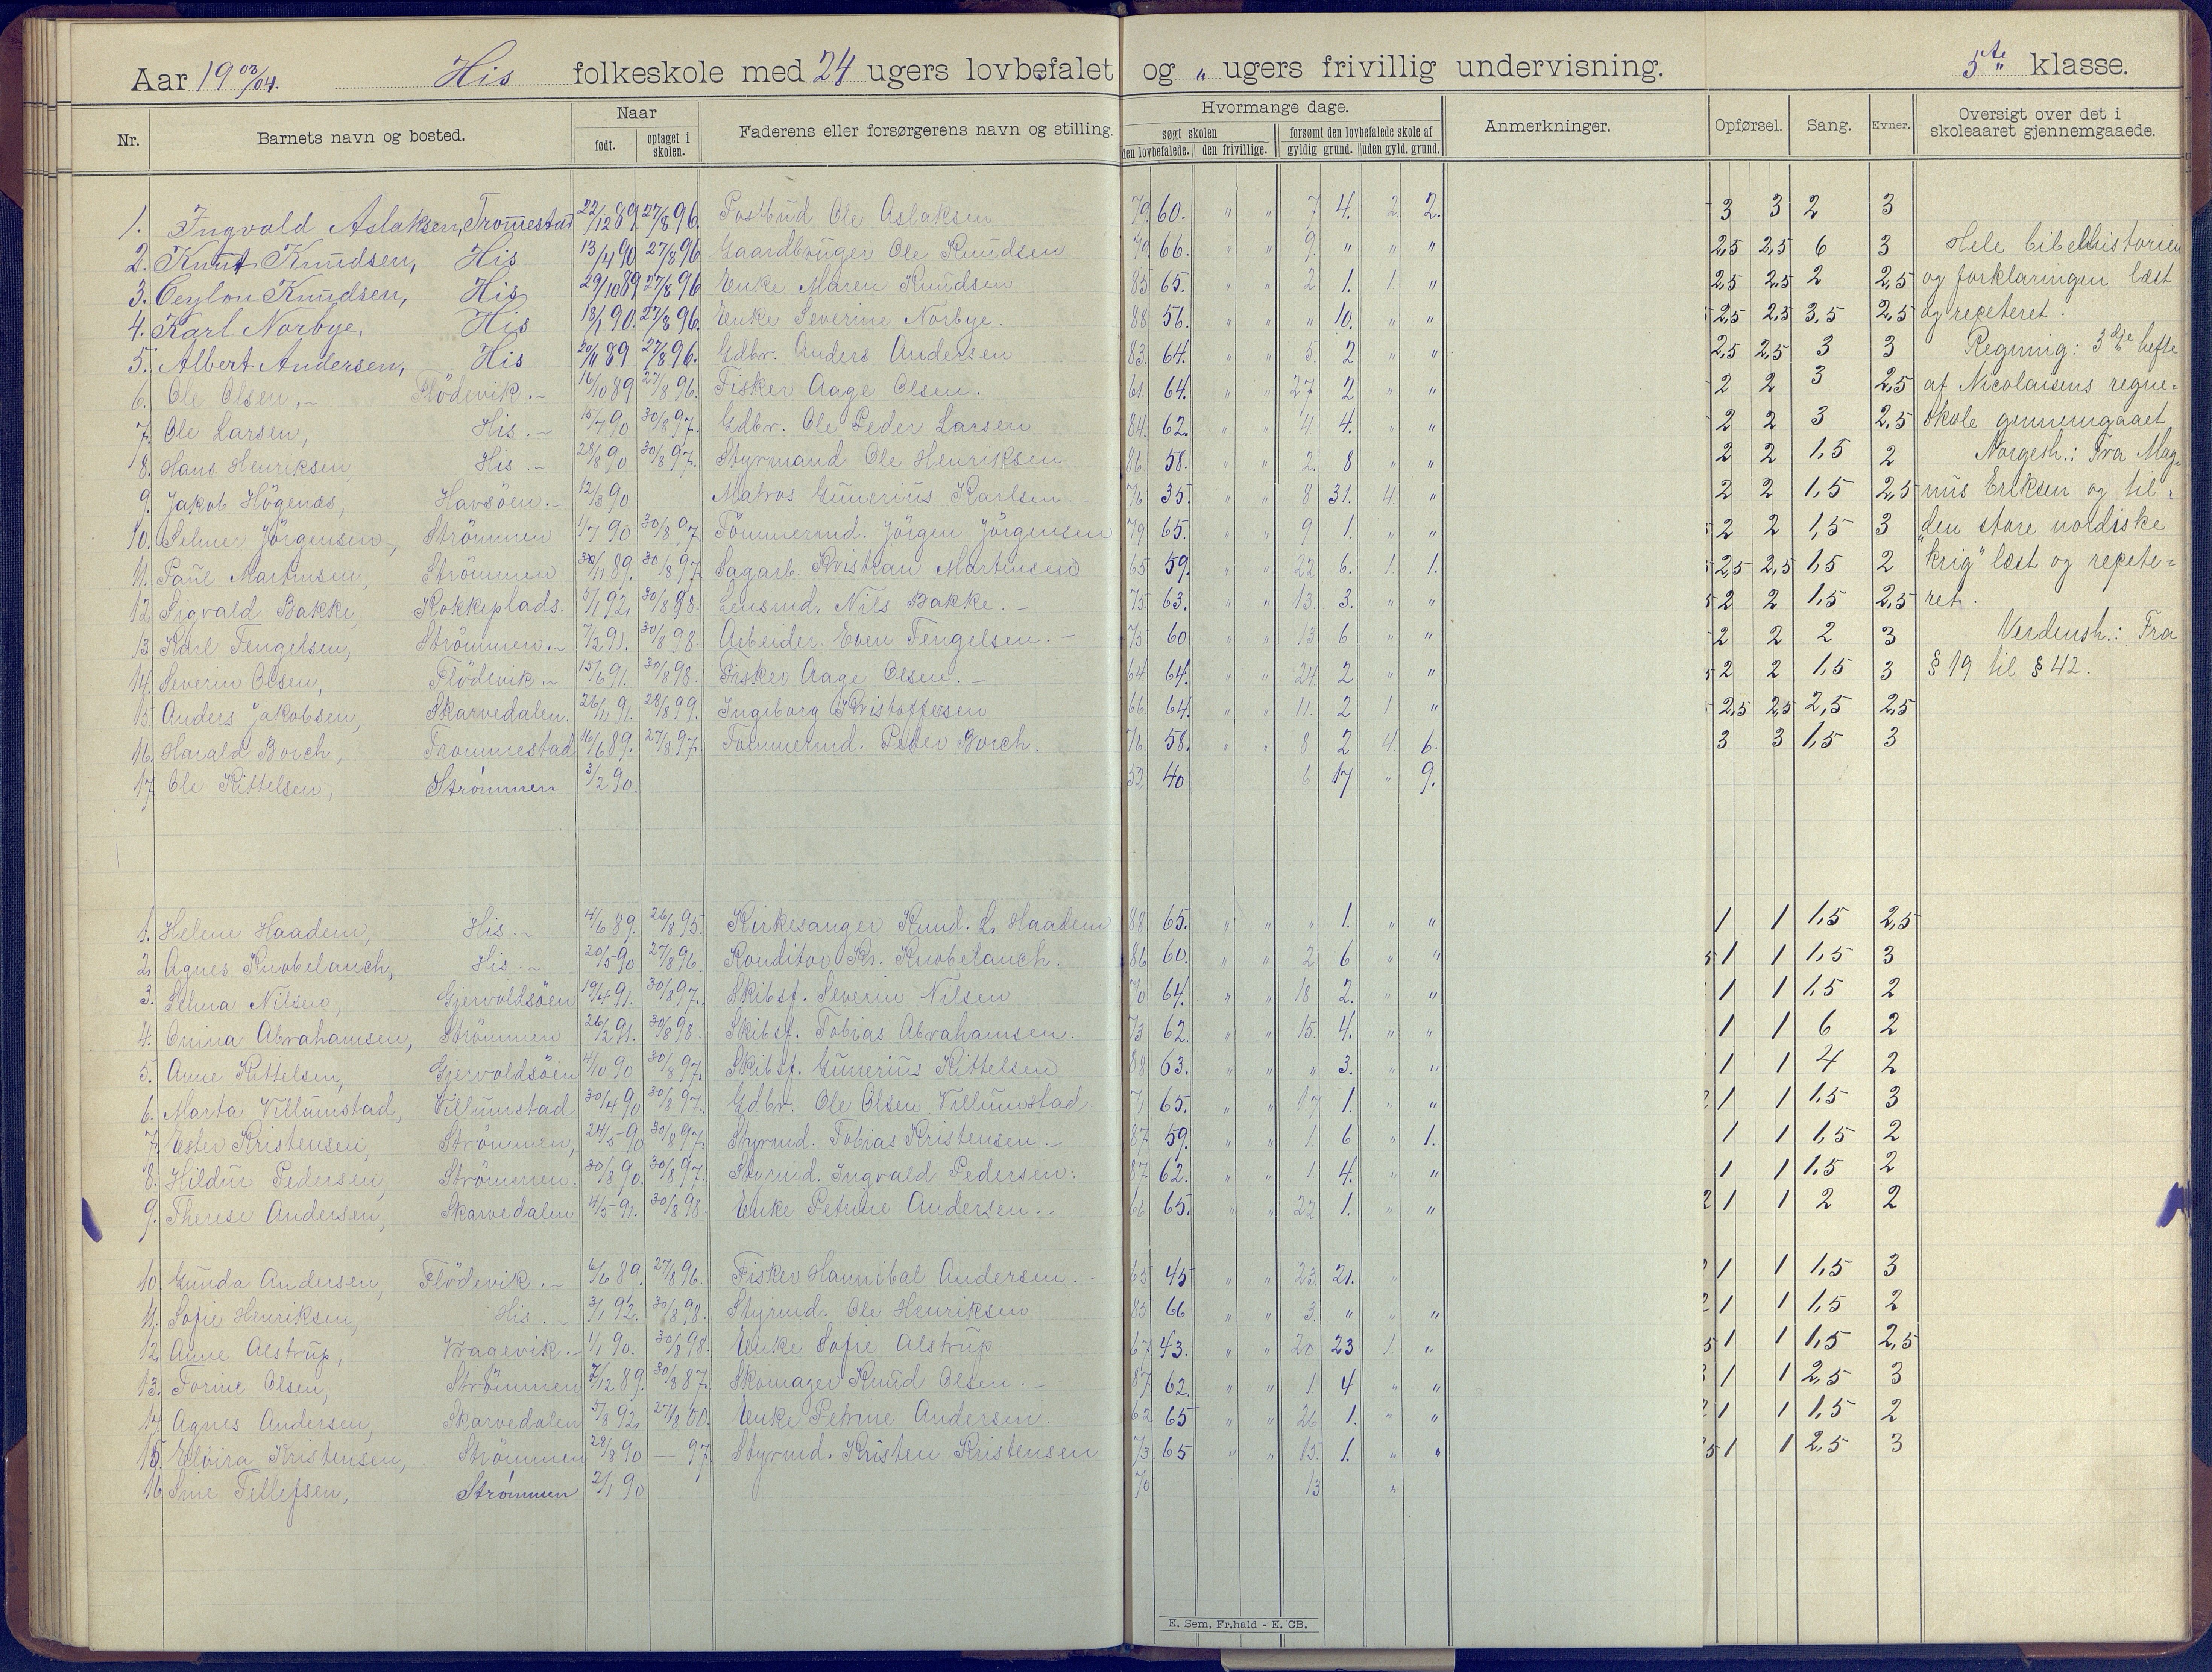 Aar 19 03/04. His folkeskole med 24 ugers lovbefalet og „ ugers frivillig undervisning. 5te klasse.
Nr. Barnets navn og bosted. Naar født. optaget i skolen. Faderens eller forsørgerens navn og stilling. Hvormange dage. søgt skolen den lovbefalede. den frivillige. forsømt den lovbefalede skole af gyldig grund. uden gyld. grund. Anmerkninger. Opførsel. Sang. Evner. Oversigt over det i skoleaaret gjennemgaaede.
1. Ingvald Aslaksen, Tromestad 22/12 89. 27/8 96. Postbud Ole Aslaksen 79. 60. „ „ 7 4. 2. 2. 3 3 2 3
2. Knut Knudsen, His 13/4 90 27/8 96 Gaardbruger Ole Knudsen 79. 66. „ „ 9. „ „ „ 2,5 2,5 6 3 Hele bibelhistorien
3. Ceylon Knudsen, His 29/10 89 27/8 96 Enke Maren Knudsen 85 65. „ „ 2 1. 1. „ 2,5 2,5 2 2,5 og forklaringen læst
4. Karl Norbye, His 18/1 90. 27/8 96. Enke Severine Norbye. 88 56. „ „ „ 10. „ „ 2,5 2,5 3,5 2,5 og repeteret.
5. Albert Andersen, His 20/11 89 27/8 96. Gdbr. Anders Andersen 83. 64. „ „ 5. 2 „ „ 2,5 2,5 3 3 Regning: 3dje hefte
6. Ole Olsen, Flödevik. 16/10 89 27/8 96. Fisker Aage Olsen. 61. 64. „ „ 27 2 „ „ 2 2 3 2,5 af Nicolaisens regne-
7. Ole Larsen, His. 15/7 90 30/8 97. Gdbr. Ole Peder Larsen 84. 62. „ „ 4 4. „ „ 2 2 3 2,5 skole gennemgaaet
8. Hans Henriksen, His. 28/8 90 30/8 97. Styrmand Ole Henriksen 86. 58. „ „ 2. 8 „ „ 2 2 1,5 2 Norgesh.: Fra Mag-
9. Jakob Högenæs, Havsöen. 12/3 90 Matros Gunerius Karlsen. 76 35. „ „ 8 31. 4. „ 2 2 1,5 2,5 nus Eriksen og til
10. Selmer Jörgensen, Strömmen 1/7 90 30/8 97. Tömmermd. Jörgen Jörgensen 79 65. „ „ 9 1. „ „ 2 2 1,5 3 „den store nordiske
11. Paul Martinsen, Strömmen 30/11 89. 30/8 97. Sagarb. Kristian Martinsen 65 59. „ „ 22 6. 1. 1. 2,5 2,5 1,5 2 krig" læst og repete-
12. Sigvald Bakke, Kokkeplads. 5/1 92. 30/8 98. Lensmd. Nils Bakke. 75 63. „ „ 13. 3. „ „ 2 2 1,5 2,5 ret.
13. Karl Tengelsen, Strömmen. 7/2 91. 30/8 98. Arbeider Even Tengelsen. 75 60 „ „ 13 6 „ „ 2 2 2 3 Verdensh.: Fra
14. Severin Olsen, Flödevik. 15/6 91. 30/8 98. Fisker Aage Olsen. 64 64. „ „ 24. 2 „ „ 2 2 1,5 3 § 19 til § 42.
15. Anders Jakobsen, Skarvedalen. 26/11 91. 28/8 99. Ingeborg Kristoffersen 66. 64. „ „ 11. 2 1. „ 2,5 2,5 2,5 2,5
16. Harald Borch, Trommestad 16/6 89. 27/8 97. Tömmermd. Peder Borch. 76. 58. „ „ 8 2 4. 6. 3 3 1,5 3
17. Ole Kittelsen, Strömmen 3/2 90. 52 40 6 17 „ 9.
1. Helene Haadem, His. 4/6 89. 26/8 95. Kirkesanger Knud. L. Haadem 88 65. „ „ „ 1. „ „ 1 1 1,5 2,5
2. Agnes Knobelauch, His. 20/5 90 27/8 96 Konditor Kr. Knobelauch. 86 60. „ „ 2 6 „ „ 1 1 1,5 3
3. Selma Nilsen, Gjervoldsöen 19/4 91. 30/8 97. Skibsf. Severin Nilsen 70 64. „ „ 18 2. „ „ 1 1 1,5 2
4. Omina Abrahamsen, Strömmen 26/2 91. 30/8 98. Skibsf. Tobias Abrahamsen. 73 62. „ „ 15. 4. „ „ 1 1 6 2
5. Anne Kittelsen, Gjervoldsöen 4/10 90 30/8 97. Skibsf. Gunerius Kittelsen 88 63. „ „ „ 3. „ „ 1 1 4 2
6. Marta Villumstad, Villumstad 30/4 90 30/8 97. Gdbr. Ole Olsen Villumstad. 71 65. „ „ 17 1. „ „ 1 1 1,5 3
7. Ester Kristensen, Strömmen, 24/5 90 30/8 97. Styrmd. Tobias Kristensen. 87 59. „ „ 1. 6 „ 1. 1 1 1,5 2
8. Hildur Pedersen, Strömmen. 30/8 90. 30/8 97. Styrmd. Ingvald Pedersen. 87 62. „ „ 1. 4. „ „ 1 1 1,5 2
9. Therese Andersen, Skarvedalen 4/5 91. 30/8 98. Enke Petrine Andersen. 66 65. „ „ 22 1. „ „ 1 1 2 2
10. Gunda Andersen, Flödevik. 6/6 89. 27/8 96. Fisker Hannibal Andersen. 65 45 „ „ 23. 21. „ 1 1 1,5 3
11. Sofie Henriksen, His. 3/1 92. 30/8 98. Styrmd. Ole Henriksen 85 66 „ „ 3. „ „ „ 1 1 1,5 2
12. Anne Alstrup, Vragevik. 1/1 90. 30/8 98. Enke Sofie Alstrup 67 43. „ „ 20 23 1. „ 1 1 1,5 2,5
13. Torine Olsen, Strömmen 7/12 89. 30/8 87. Skomager Knud Olsen. 87 62. „ „ 1. 4 „ „ 1 1 2,5 3
14. Agnes Andersen, Skarvedalen 5/8 92. 27/8 00. Enke Petrine Andersen. 62 65 „ „ 26 1. „ „ 1 1 1,5 2
15. Elvira Kristensen, Strömmen 28/8 90 — 97. Styrmd. Kristen Kristensen 73. 65 „ „ 15. 1. „ „ 1 1 2,5 3
16. Sine Tellefsen, Strömmen 2/1 90 70 13 „
E. Sem, Fr.hald - E. CB.